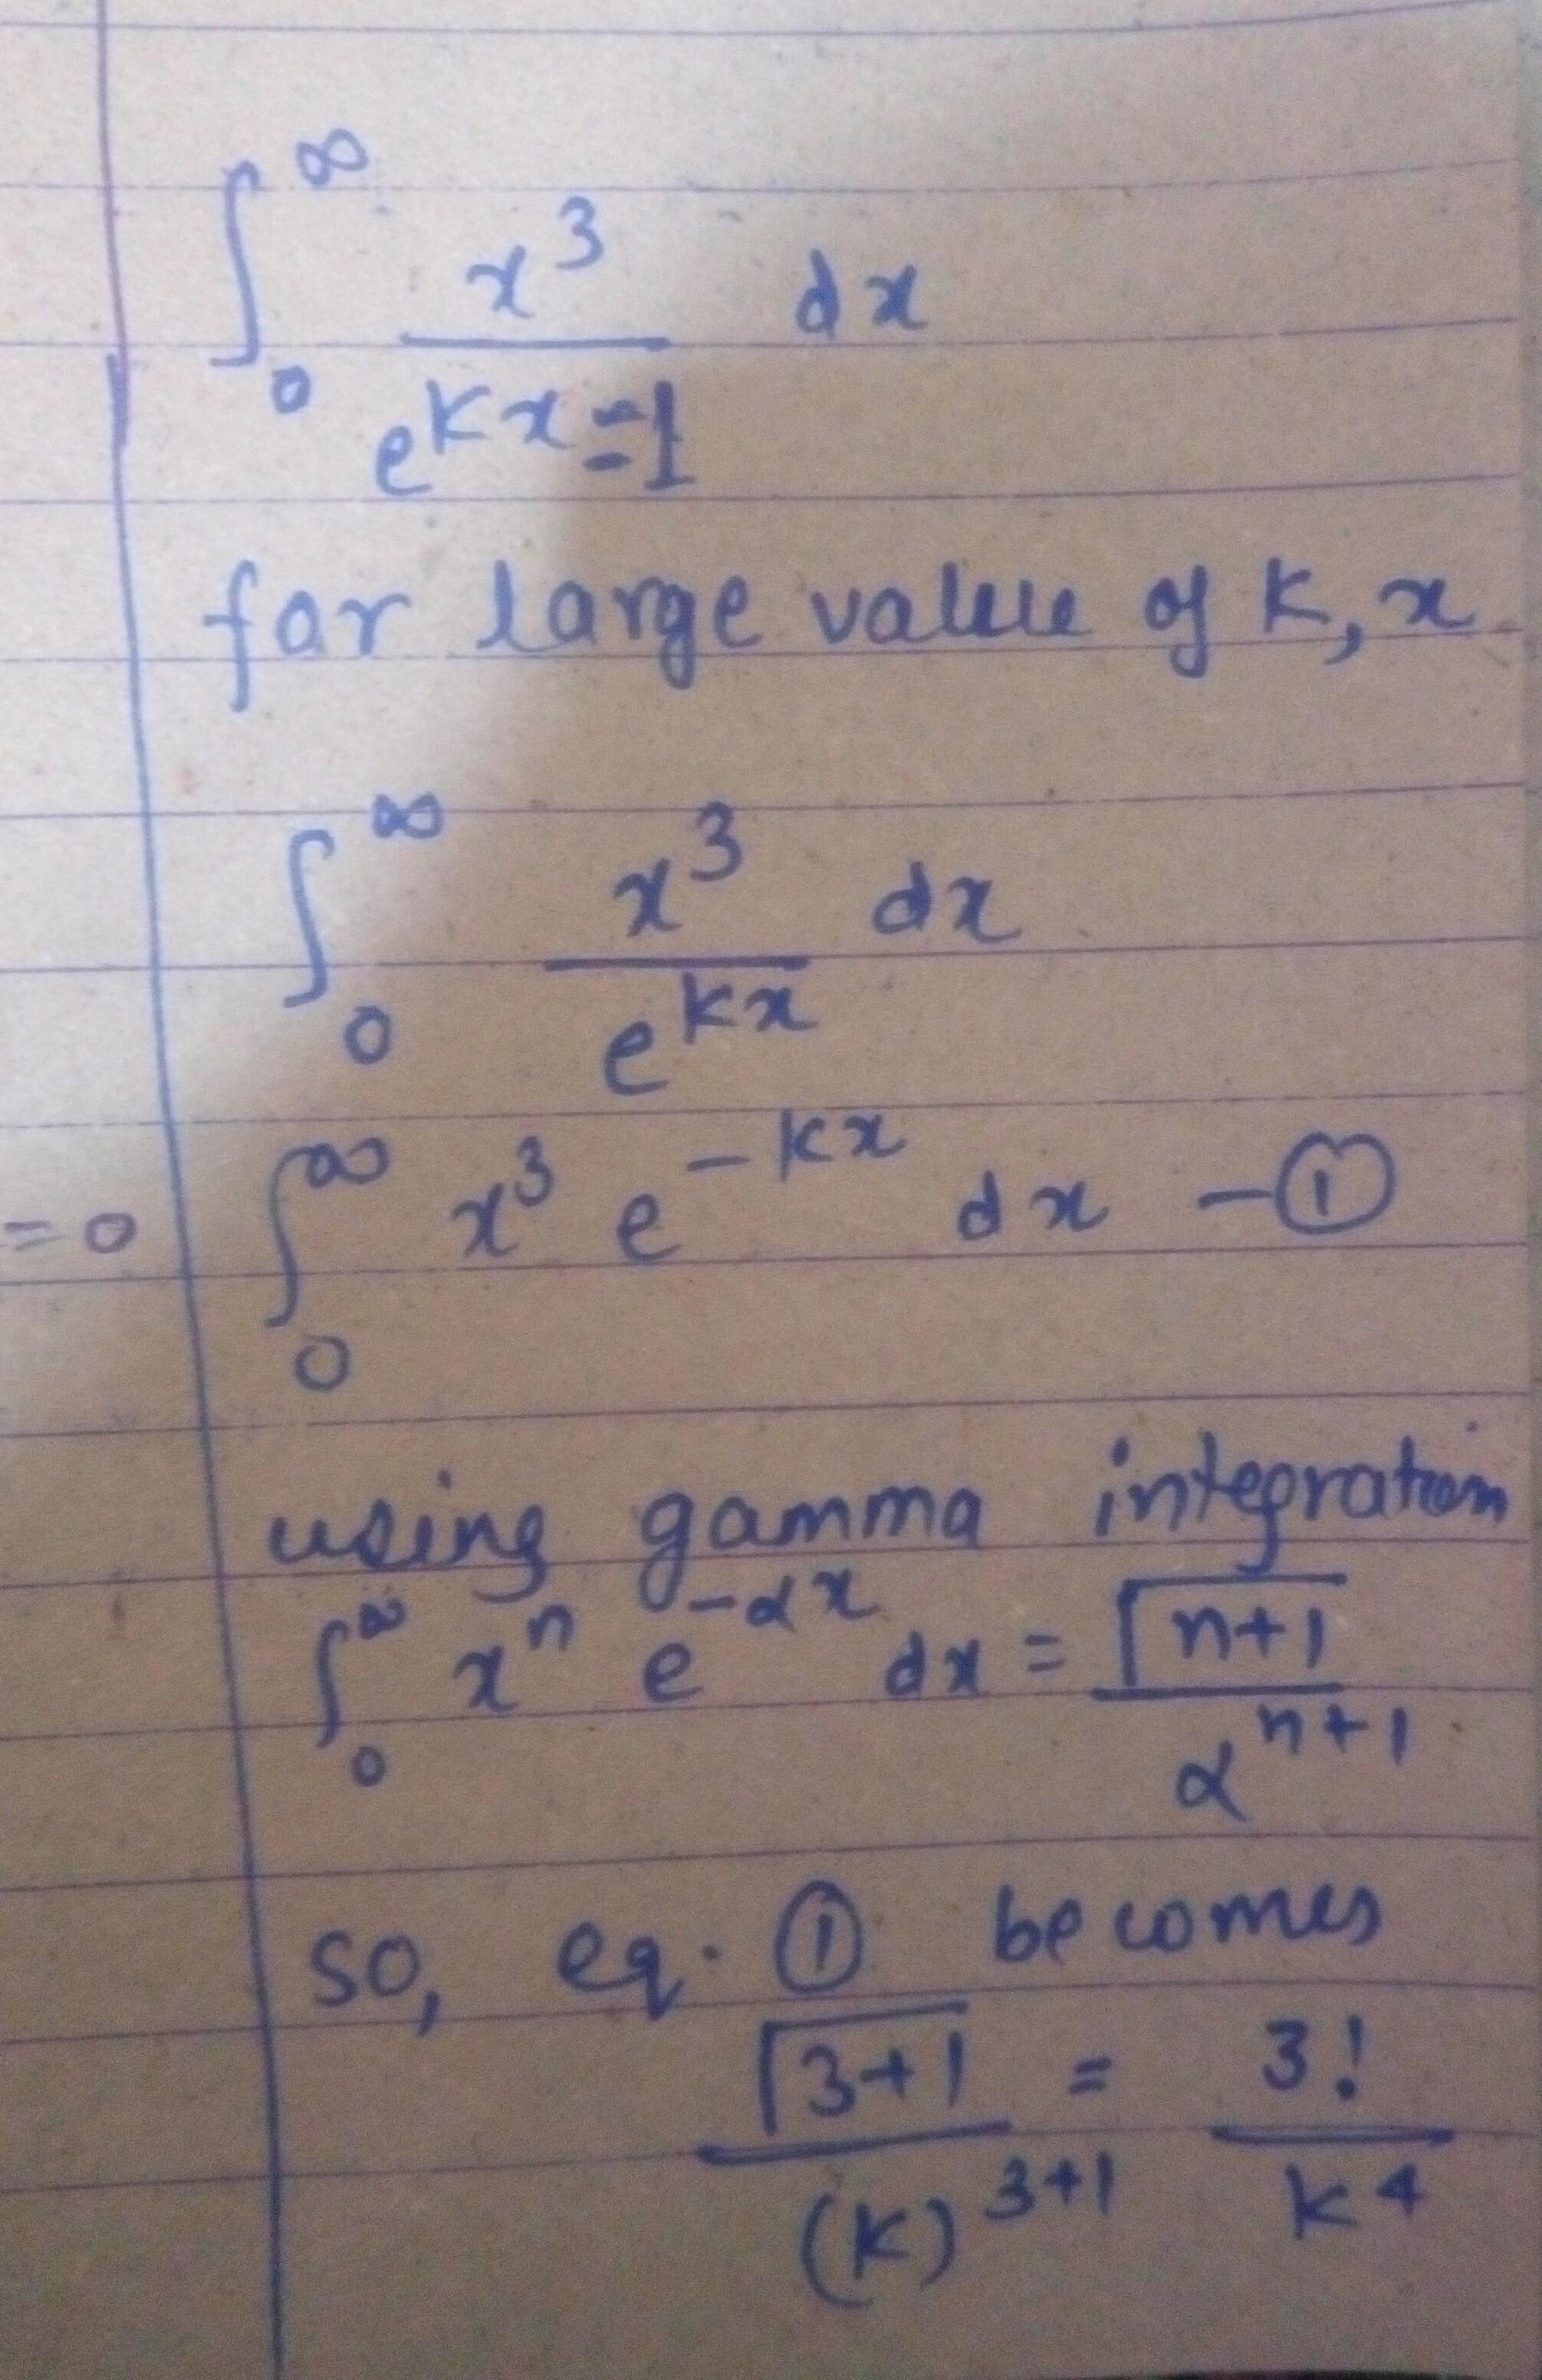 ∫₀^∞ x³ / (e^{kx} = 1) dx
for large value of k, x
∫₀^∞ x³ / e^{kx} dx
= 0 ∫₀^∞ x³ e^{-kx} dx - ①
using gamma integration
∫₀^∞ xⁿ e^{-αx} dx = Γ(n+1) / α^{n+1}
so, eq. ① becomes
Γ(3+1) / (k)^{3+1} = 3! / k⁴